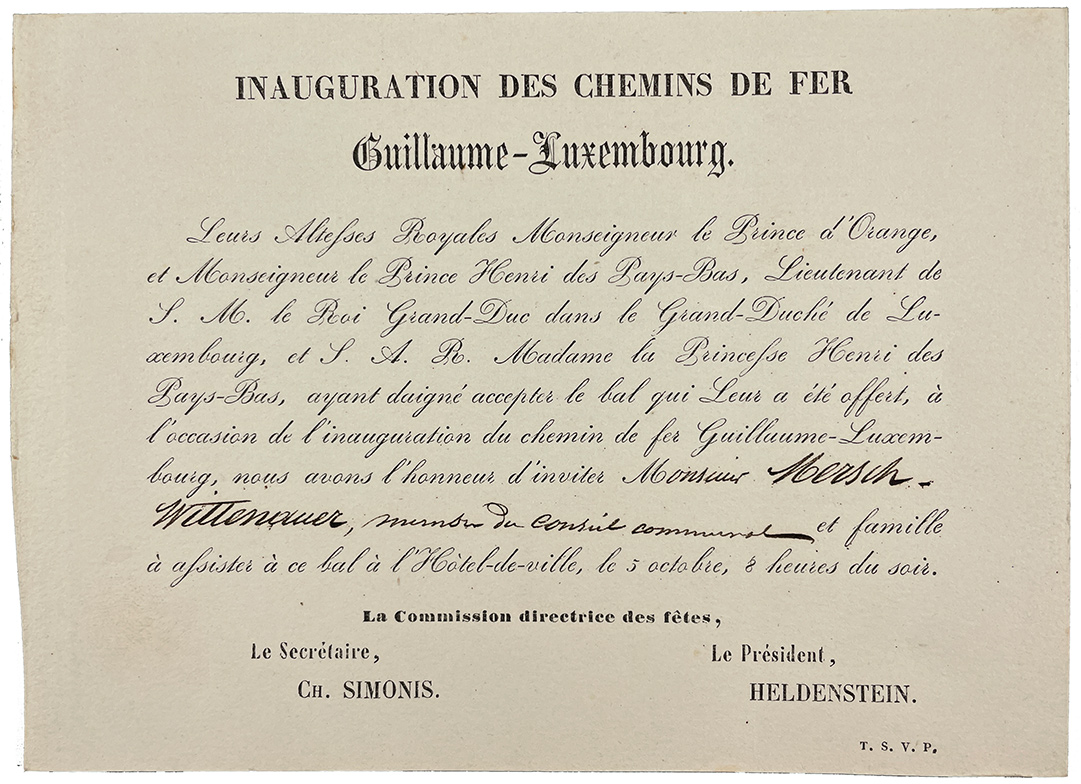 INAUGURATION DES CHEMINS DE FER
Guillaume-Luxembourg.
Leurs Altesses Royales Monseigneur le Prince d'Orange,
et Monseigneur le Prince Henri des Pays-Bas, Lieutenant de
S. M. le Roi Grand-Duc dans le Grand-Duché de Lu-
xembourg, et S. A. R. Madame la Princesse Henri des
Pays-Bas, ayant daigné accepter le bal qui Leur a été offert, à
l'occasion de l'inauguration du chemin de fer Guillaume-Luxem-
bourg, nous avons l'honneur d'inviter Monsieur Mersch-
Wittenauer, membre du Conseil communal et famille
à assister à ce bal à l'Hôtel-de-ville, le 5 octobre, 8 heures du soir.
La Commission directrice des fêtes,
Le Secrétaire, Le Président,
CH. SIMONIS. HELDENSTEIN.
T. S. V. P.